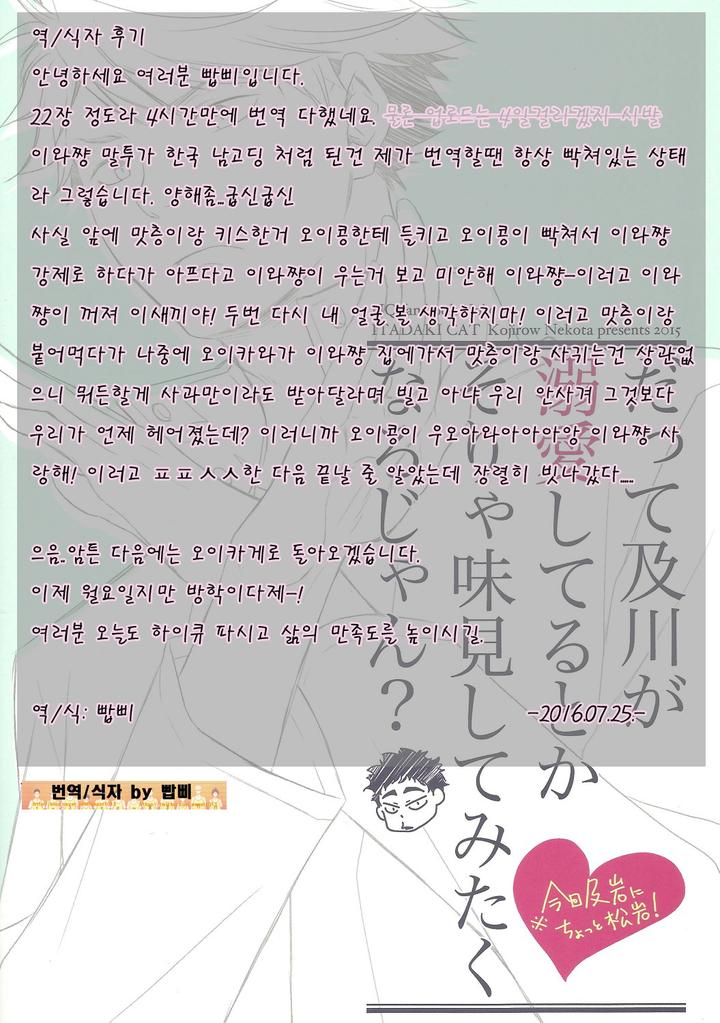 역/식자 후기
안녕하세요 여러분 빱삐입니다.
22장 정도라 4시간만에 번역 다했네요. 물론 업로드는 4일걸리겠지 시발
이와쨩 말투가 한국 남고딩 처럼 된건 제가 번역할땐 항상 빡쳐있는 상태
라 그렇습니다. 양해좀..굽신굽신
사실 앞에 맛층이랑 키스한거 오이콩한테 들키고 오이콩이 빡쳐서 이와쨩
강제로 하다가 아프다고 이와쨩이 우는거 보고 미안해 이와쨩-이러고 이와
쨩이 꺼져 이새끼야! 두번 다시 내 얼굴 볼 생각하지마! 이러고 맛층이랑
붙어먹다가 나중에 오이카와가 이와쨩 집에가서 맛층이랑 사귀는건 상관없
으니 뭐든할게 사과만이라도 받아달라며 빌고 아냐 우리 안사겨 그것보다
우리가 언제 헤어졌는데? 이러니까 오이콩이 우오아와아아아앙 이와쨩 사
랑해! 이러고 ㅍㅍㅅㅅ한 다음 끝날 줄 알았는데 장렬히 빗나갔다.....
으음..암튼 다음에는 오이카게로 돌아오겠습니다.
이제 월요일지만 방학이다제-!
여러분 오늘도 하이큐 파시고 삶의 만족도를 높이시길.
역/식: 빱삐
-2016.07.25.-
번역/식자 by 빱삐
ITADAKI CAT Kojirow Nekota presents 2015
だって及川が
溺愛してるとか
そりゃ味見してみたく
なるじゃん?
今回及岩に
※ちょっと松岩!